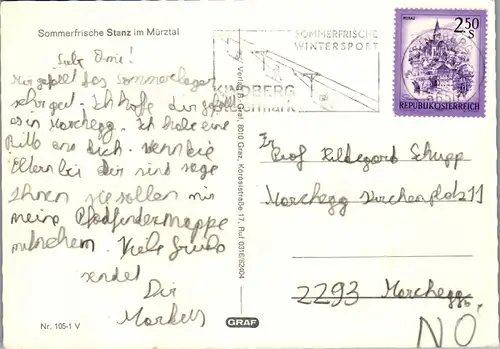 Sommerfrische Stanz im Mürztal
SOMMERFRISCHE
WINTERSPORT
KINDBERG
Steiermark
MURAU
2.50
S
REPUBLIK ÖSTERREICH
Liebe Omi!
Mir gefällt das Sommerlager
sehr gut. Ich hoffe dir gefällt
es in Marchegg. Ich habe eine
Bitte an dich. Wenn die
Eltern bei dir sind sage
Ihnen sie sollen mir
meine Pfadfindermappe
mitnehmen. Viele Grüße
sendet
Dir
Markus
Verlag A. Graf, 8010 Graz, Körösistraße 17, Ruf 0316/62404
Prof Hildegard Schupp
Marchegg Kirchenplatz 11
2293 Marchegg
NÖ
Nr. 105-1 V
GRAF